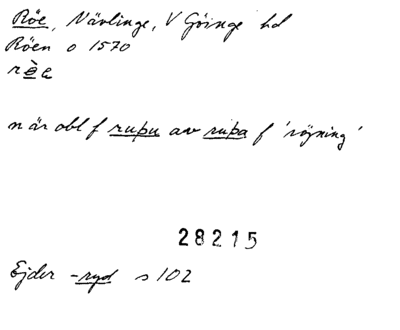 Röe, Nävlinge, V Göinge hd
Röen o 1570
rèe
n är obl f ruþu av ruþa f 'röjning'
28215
Ejder -ryd s 102